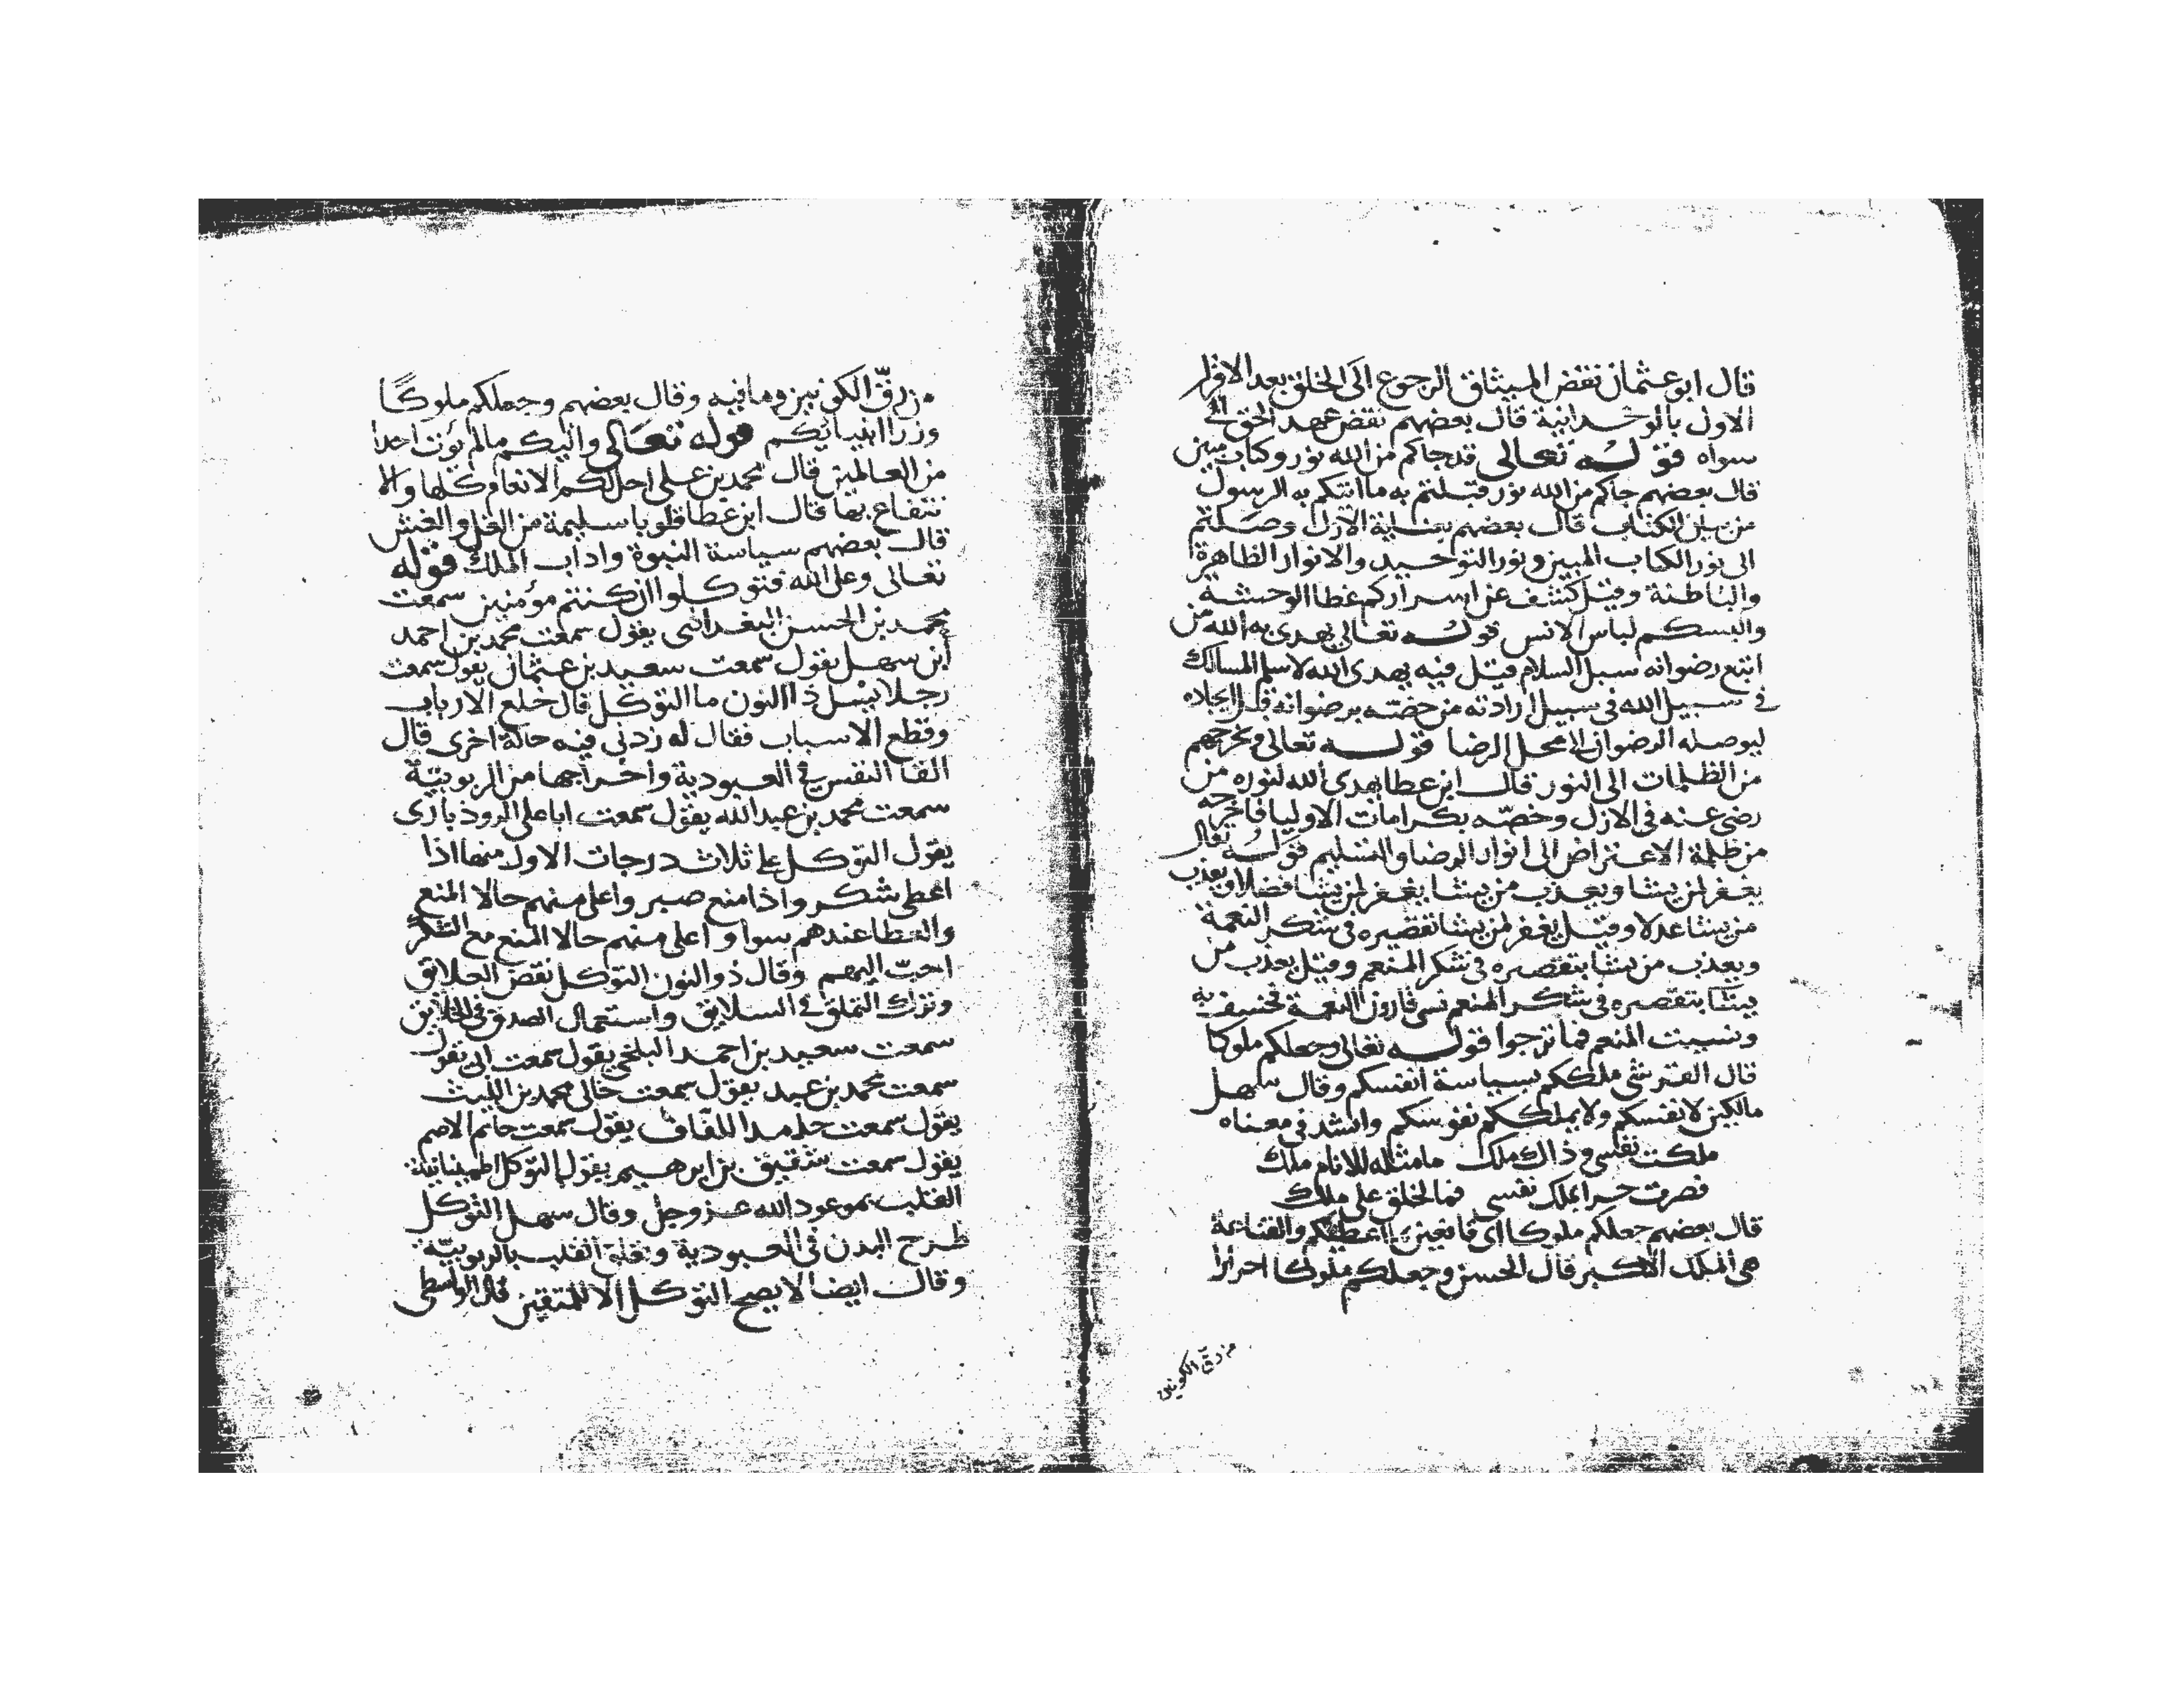 قال ابو عثمان نقض الميثاق الرجوع الى الخلق بعد الاقرار
الاول بالوحدانية قال بعضهم نقض عهد الحق الى
سواه قوله تعالى قد جاكم من الله نور وكتاب مبين
قال بعضهم جاكم من الله نور قبلتم به ما اتيكم به الرسول
من بيان الكتاب قال بعضهم بعناية الازل وصلتم
الى نور الكتاب المبين ونور التوحيد والانوار الظاهرة
والباطنة وقيل كشف عن اسراركم غطا الوحشة
والبسكم لباس الانس قوله تعالى يهدى به الله من
اتبع رضوانه سبل السلام قيل فيه يهدى الله لاسلم المسالك
في سبيل الله فى سبيل ارادته من خصته برضوانه قبل ايجاده
ليوصله الرضوان الى محل الرضا قوله تعالى ويخرجهم
من الظلمات الى النور قال ابن عطا يهدى الله لنوره من
رضى عنه فى الازل وخصّه بكرامات الاوليا فاخرجه
من ظلمة الاعتراض الى انوار الرضا والتسليم قوله تعالى
يغفر لمن يشا ويعذب من يشا يغفر لمن يشا فضلا ويعذب
من يشا عدلا وقيل يغفر لمن يشا تقصيره فى شكر النعمة
ويعذب من يشا بتقصيره فى شكر المنعم وقيل يعذب من
يشا بتقصيره فى شكر المنعم نسى قارون النعمة فخسف به
ونسيت المنعم فما ترجوا قوله تعالى وجعلكم ملوكا
قال القرشى ملككم بسياسة انفسكم وقال سهل
مالكين لانفسكم ولا يملككم نفوسكم وانشد فى معناه
ملكت نفسى وذاك ملك ما مثله للانام ملك
فصرت حرا بملك نفسى فما لخلق على ملك
قال بعضهم جعلكم ملوكا اى قانعين بما اعطيتكم والقناعة
هى الملك الاكبر قال الحسن وجعلكم ملوكا احرارا
من رقّ الكونين
من رقّ الكونين وما فيه وقال بعضهم وجعلكم ملوكًا
وزرا انبيائكم قوله تعالى واتيكم ما لم يؤت احدا
من العالمين قال محمد بن على احل لكم الانعام كلها والا
نتفاع بها قال ابن عطا قلوبا سليمة من الغل والغش
قال بعضهم سياسة النبوة واداب الملك قوله
تعالى وعلى الله فتوكلوا ان كنتم مؤمنين سمعت
محمد بن الحسن البغدادى يقول سمعت محمد بن احمد
ابن سهل يقول سمعت سعيد بن عثمان يقول سمعت
رجلا يسل ذا النون ما التوكل قال خلع الارباب
وقطع الاسباب فقال له زدنى فيه حالة اخرى قال
القا النفس فى العبودية واخراجها من الربوبيّة
سمعت محمد بن عبد الله يقول سمعت ابا على الروذبارى
يقول التوكل على ثلاث درجات الاول منها اذا
اعطى شكر واذا منع صبر واعلى منهم حالا المنع
والعطا عندهم سوا واعلى منهم حالا المنع مع الشكر
احبّ اليهم وقال ذو النون التوكل نقض العلايق
وترك التملق فى السلايق واستعمال الصدق فى الخلايق
سمعت سعيد بن احمد البلخى يقول سمعت ابى يقول
سمعت محمد بن عبد يقول سمعت خالى محمد بن الليث
يقول سمعت حامدا اللفّاف يقول سمعت حاتم الاصم
يقول سمعت شقيق بن ابرهيم يقول التوكل اطمينانية
القلب بموعود الله عز وجل وقال سهل التوكل
طرح البدن فى العبودية وتعلق القلب بالربوبيّة
وقال ايضا لا يصح التوكل الا للمتقين قال الواسطى